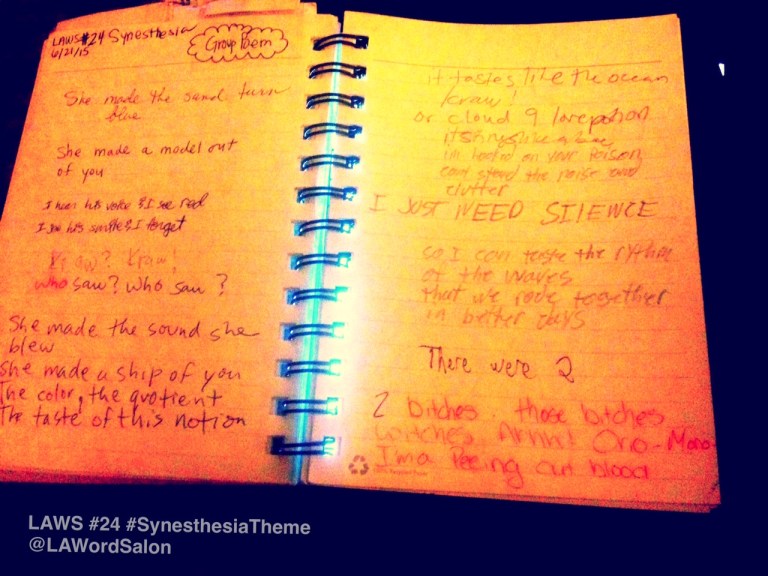 LAWS #24 Synesthesia
6/21/15
Group Poem
She made the sand turn
blue
She made a model out
of you
I hear his voice & I see red
I see his smile & I forget
Kraw? Kraw!
who saw? Who saw?
She made the sound she
blew
She made a ship of you
The color, the quotient
The taste of this notion
it tastes like the ocean
kraw!
or cloud 9 love potion
im hooked on your poison
cant stand the noise and
clutter
I JUST NEED SILENCE
so I can taste the rythm
of the waves
that we rode together
in better days
There were 2
2 bitches. those bitches
witches
I'm a Peeing out blood
LAWS #24 #SynesthesiaTheme
@LAWordSalon